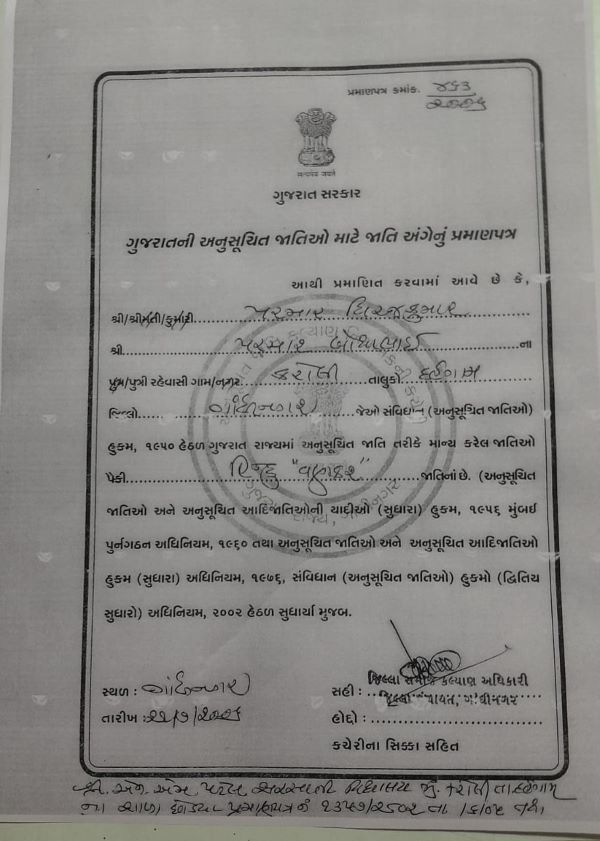 પ્રમાણપત્ર ક્રમાંક. ૪૬૩
૨૦૦૬
सत्यमेव जयते
ગુજરાત સરકાર
ગુજરાતની અનુસૂચિત જાતિઓ માટે જાતિ અંગેનું પ્રમાણપત્ર
આથી પ્રમાણિત કરવામાં આવે છે કે,
શ્રી/શ્રીમતી/કુમારી પરમાર ધિરજકુમાર
શ્રી પરમાર ના
પુત્ર/પુત્રી રહેવાસી ગામ/નગર કરોલી તાલુકો દહેગામ
જિલ્લો ગાંધીનગર જેઓ સંવિધાન (અનુસૂચિત જાતિઓ)
હુકમ, ૧૯૫૦ હેઠળ ગુજરાત રાજ્યમાં અનુસૂચિત જાતિ તરીકે માન્ય કરેલ જાતિઓ
પૈકી હિન્દુ "વણકર" જાતિનાં છે. (અનુસૂચિત
જાતિઓ અને અનુસૂચિત આદિજાતિઓની યાદીઓ (સુધારા) હુકમ, ૧૯૫૬ મુંબઈ
પુર્નગઠન અધિનિયમ, ૧૯૬૦ તથા અનુસૂચિત જાતિઓ અને અનુસૂચિત આદિજાતિઓ
હુકમ (સુધારા) અધિનિયમ, ૧૯૭૬, સંવિધાન (અનુસૂચિત જાતિઓ) હુકમો (દ્વિતિય
સુધારો) અધિનિયમ, ૨૦૦૨ હેઠળ સુધાર્યા મુજબ.
જિલ્લા સમાજ કલ્યાણ અધિકારી
સ્થળ : ગાંધીનગર
સહી : જિલ્લા પંચાયત, ગાંધીનગર
તારીખ : ૨૨/૭/૨૦૦૬
હોદ્દો :
કચેરીના સિક્કા સહિત
શ્રી. એન. એમ. પટેલ વિદ્યાલય મું. કરોલી તા. દહેગામ
ના શાળા છોડ્યા પ્રમાણપત્ર નં